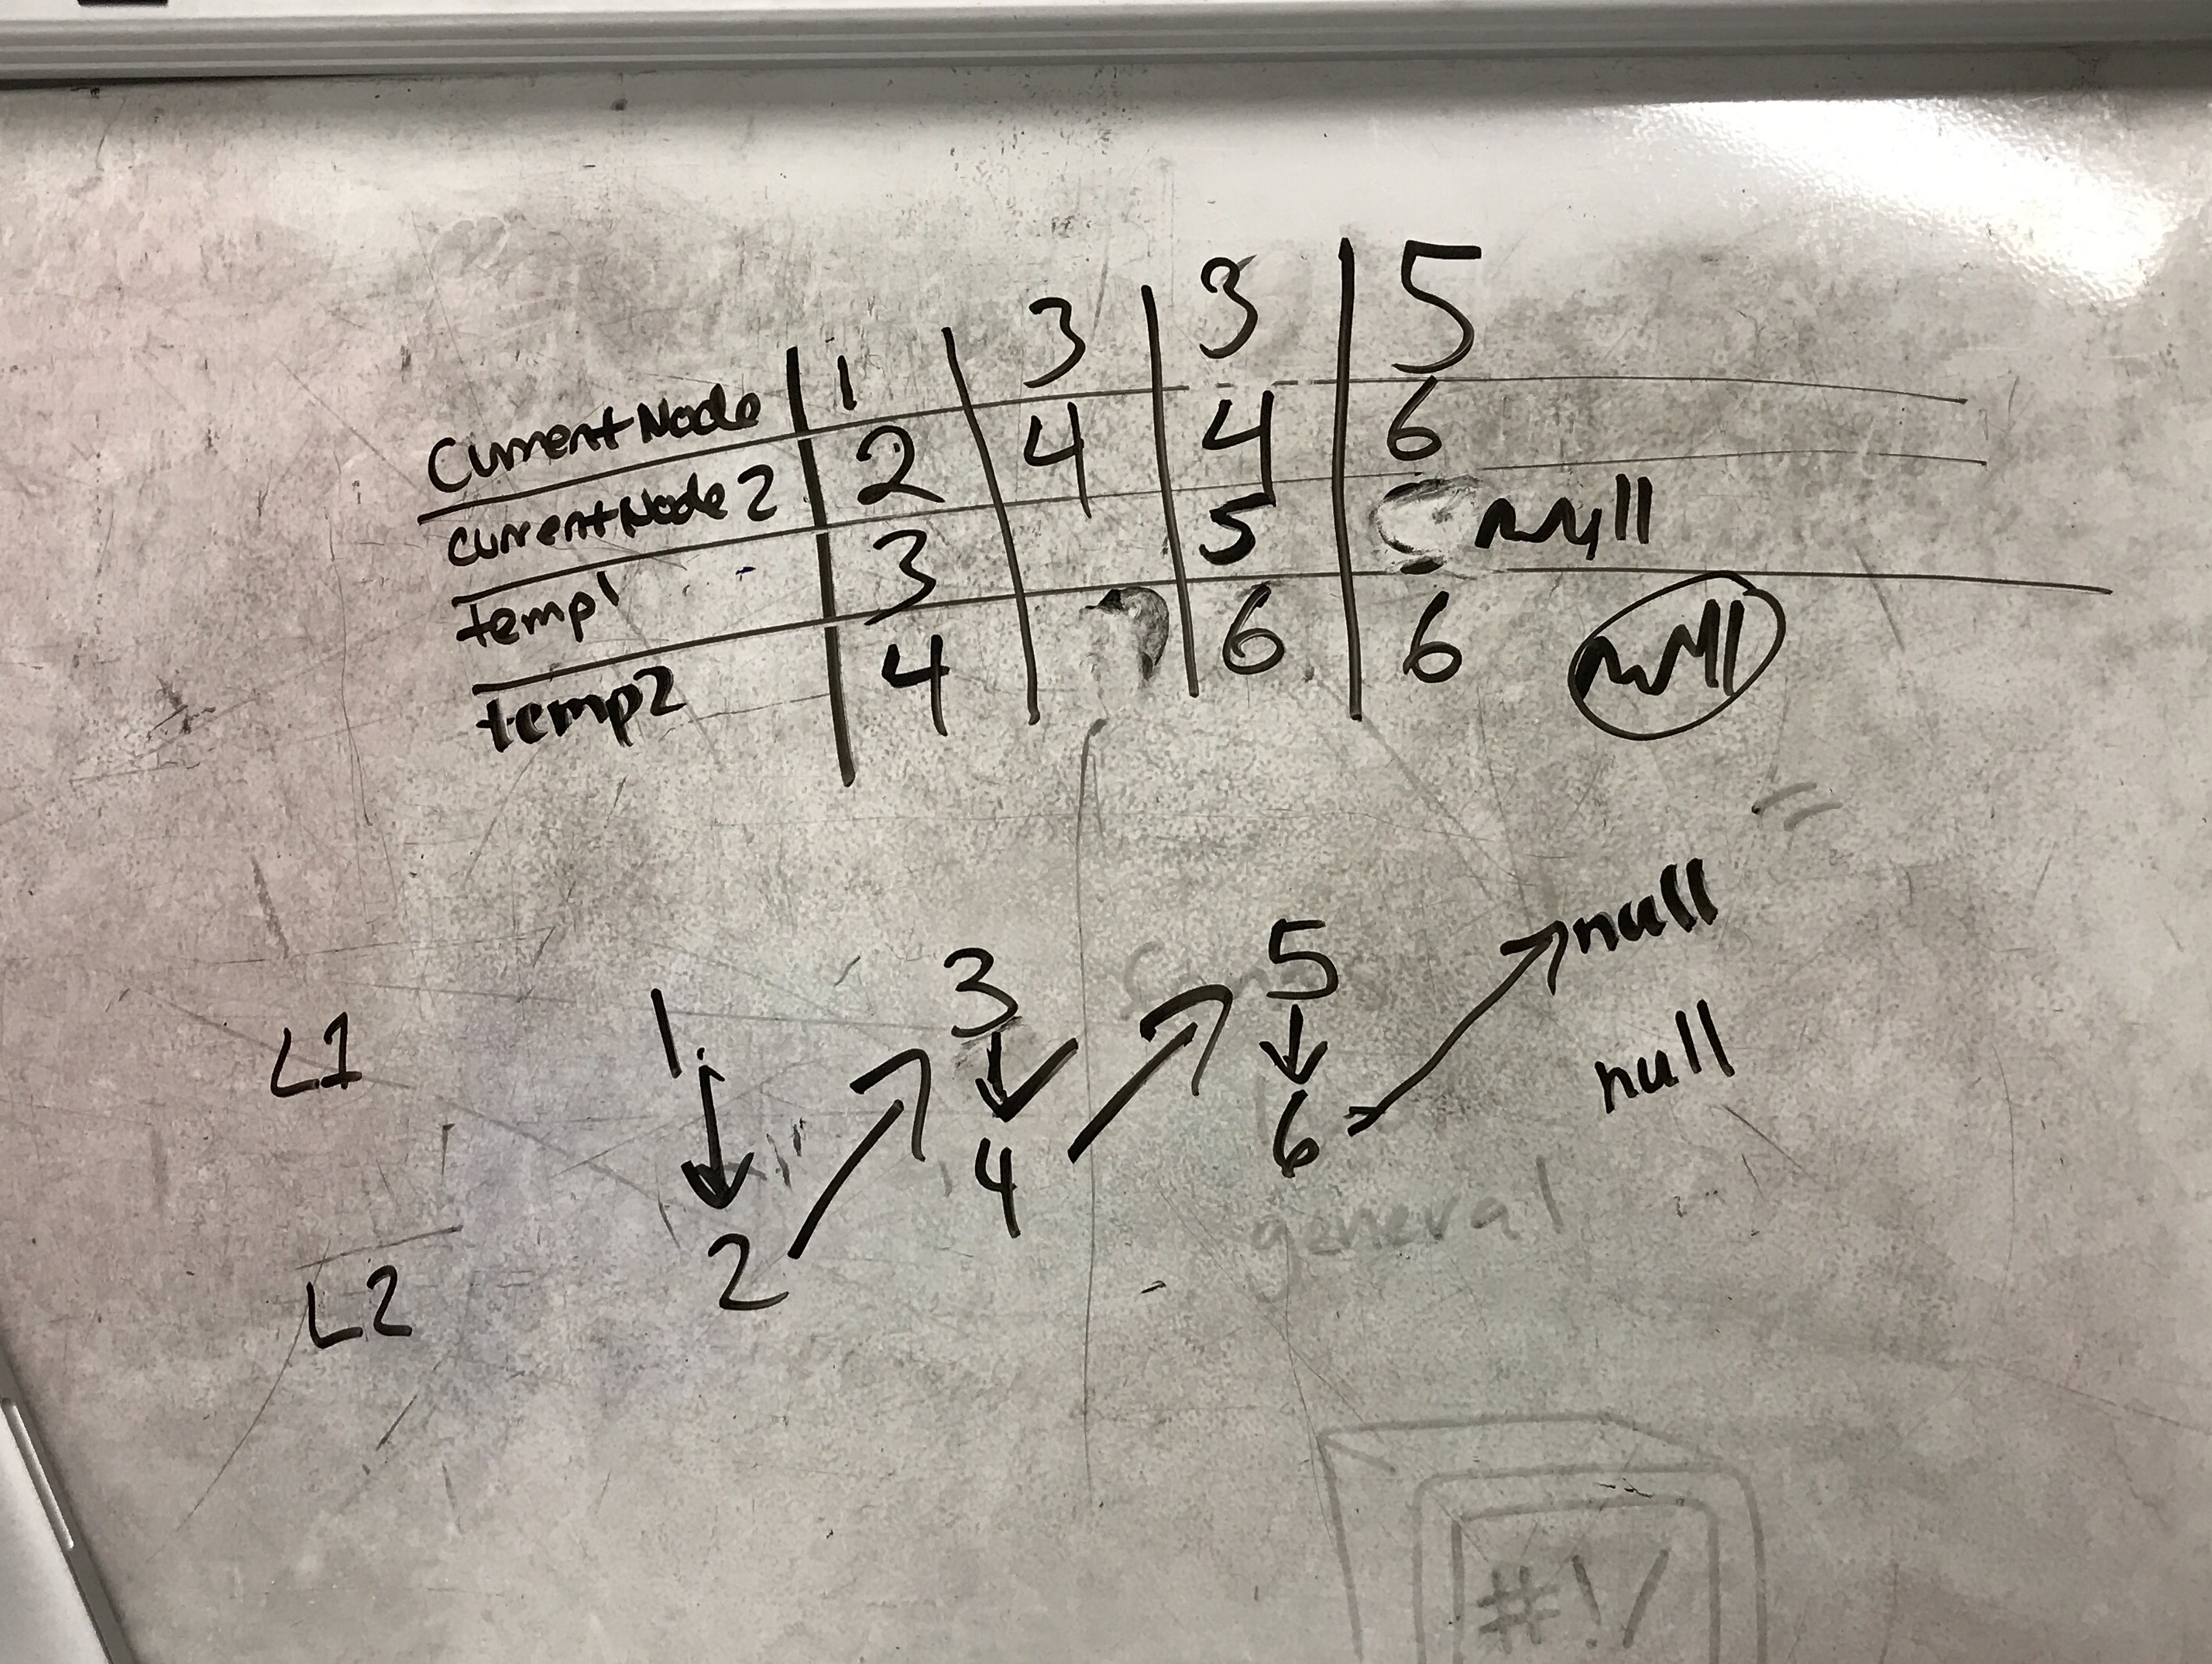 CurrentNode 1 3 3 5
CurrentNode 2 2 4 4 6
temp1 3 5 null
temp2 4 6 6 null
L1 1 3 5 null
null
L2 2 4 6
general
#!/